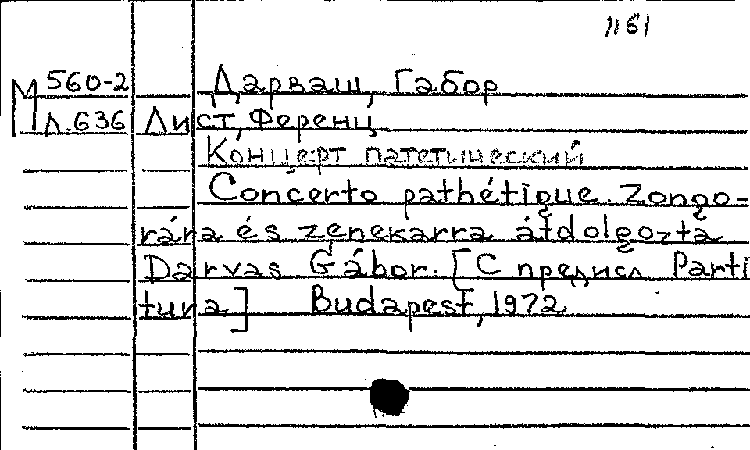 1161
М 560-2 Дарваш, Габор
Л.636 Лист, Ференц
Концерт патетический
Concerto pathétique. Zongo=
rára és zenekarra átdolgozta
Darvas Gábor. [С предисл Parti
tura] Budapest, 1972